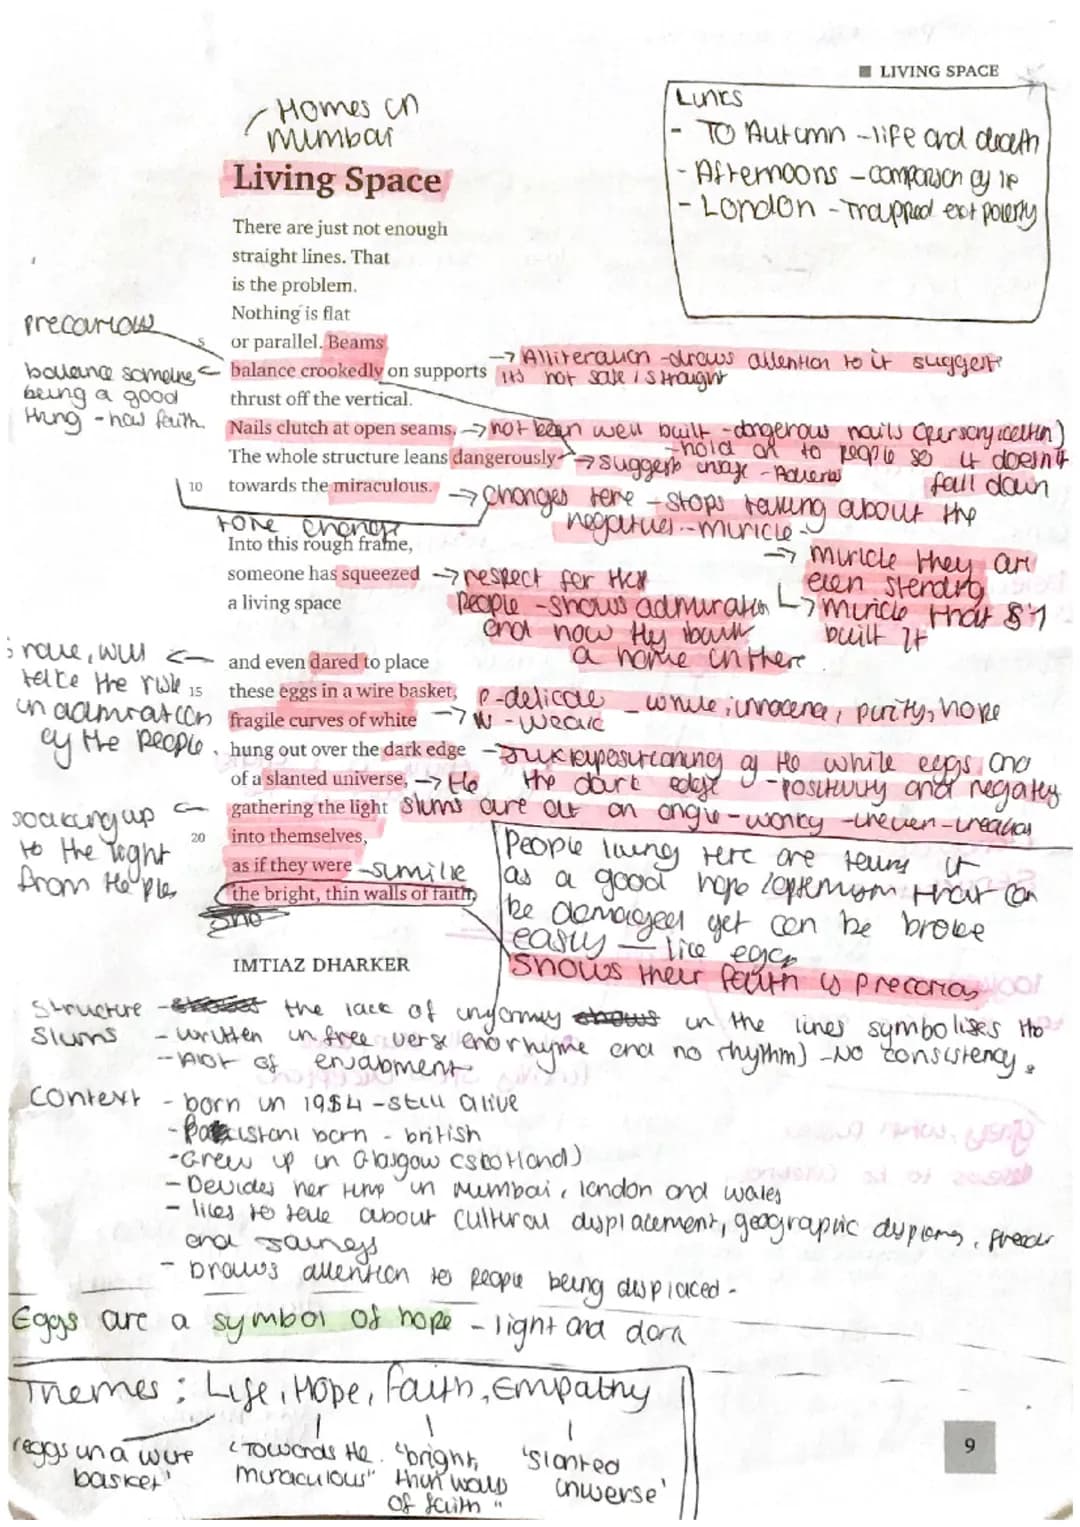 LIVING SPACE
Homes in
Mumbai
Living Space
Links
- TO Autumn - life and death
- Afternoons - comparison of life
- London - Trapped poverty
There are just not enough
straight lines. That
is the problem.
Nothing is flat
5 or parallel. Beams
balance crookedly on supports
thrust off the vertical.
Nails clutch at open seams.
The whole structure leans dangerously
10 towards the miraculous.
Into this rough frame,
someone has squeezed
a living space
and even dared to place
15 these eggs in a wire basket,
fragile curves of white
hung out over the dark edge
of a slanted universe,
gathering the light
20 into themselves,
as if they were
the bright, thin walls of faith.
IMTIAZ DHARKER
precarious
balance
being a good
thing - how faith.
→ Alliteration - draws attention to it suggest
its not safe / straight
→ not been well built - dangerous nails
- hold on to people so it doesn't
fall down
→ suggests image - Adverb
→ changes here - stops talking about the
negatives - miricle
tone change
→ miricle they are
even standing
→ miricle that built it
→ respect for the
people - shows admiration
and how they built
a home in there
take the risk
in admiration
of the people.
- delicate - white, innocence, purity, hope
- weak
- juxtapositioning of the white eggs and
the dark edge - positivity and negativity
→ the
slums are at an angle - wonky - uneven
soaking up
to the light
from the
- similie
People living here are
as a good hope
be damaged yet can be broke
easily - like eggs
Shows their faith is precarious
Structure - the lack of in the lines symbolises the
slums - written in free verse (no rhyme and no rhythm) - No consistency.
- A lot of enjabment
Context - born in 1954 - still alive
- Pakistani born - british
- Grew up in Glasgow (scotland)
- Devides her time in Mumbai, london and wales
- likes to about cultural displacement, geographic
and
- Draws attention to people being displaced -
Eggs are a symbol of hope - light and dark
Themes : Life, Hope, Faith, Empathy
'eggs in a wire basket'
"Towards the miraculous"
"bright, thin walls of faith"
'slanted universe'
9